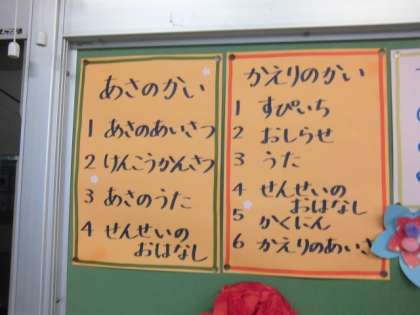 あさのかい
1 あさのあいさつ
2 けんこうかんさつ
3 あさのうた
4 せんせいの
おはなし
かえりのかい
1 すぴいち
2 おしらせ
3 うた
4 せんせいの
おはなし
5 かくにん
6 かえりのあいさ